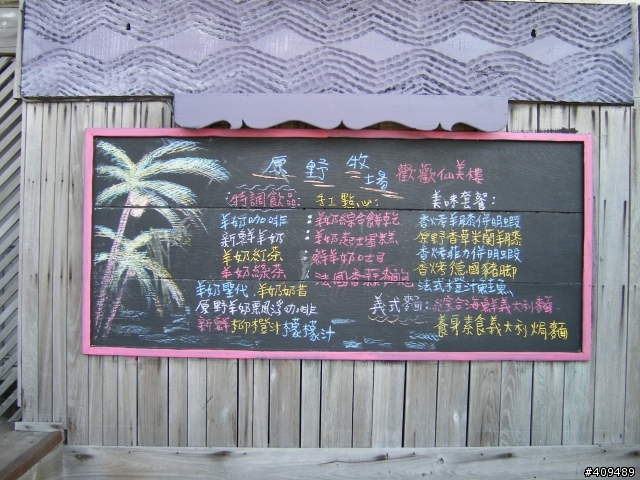 原野牧場 歡歡仙美樓
特調飲品: 手工點心: 美味套餐:
羊奶咖啡 羊奶綜合餅乾 香烤羊膝併明蝦
新鮮羊奶 羊奶起士蛋糕 原野香草米蘭羊膝
羊奶紅茶 鮮羊奶吐司 香烤菲力併明蝦
羊奶綠茶 法國香蒜麵包 香烤德國豬腳
羊奶聖代.羊奶奶昔 法式橙汁
原野羊奶栗風浮咖啡 義式麵:綜合海鮮義大利麵.
新鮮柳橙汁檬檬汁 養身素食義大利焗麵
#409489